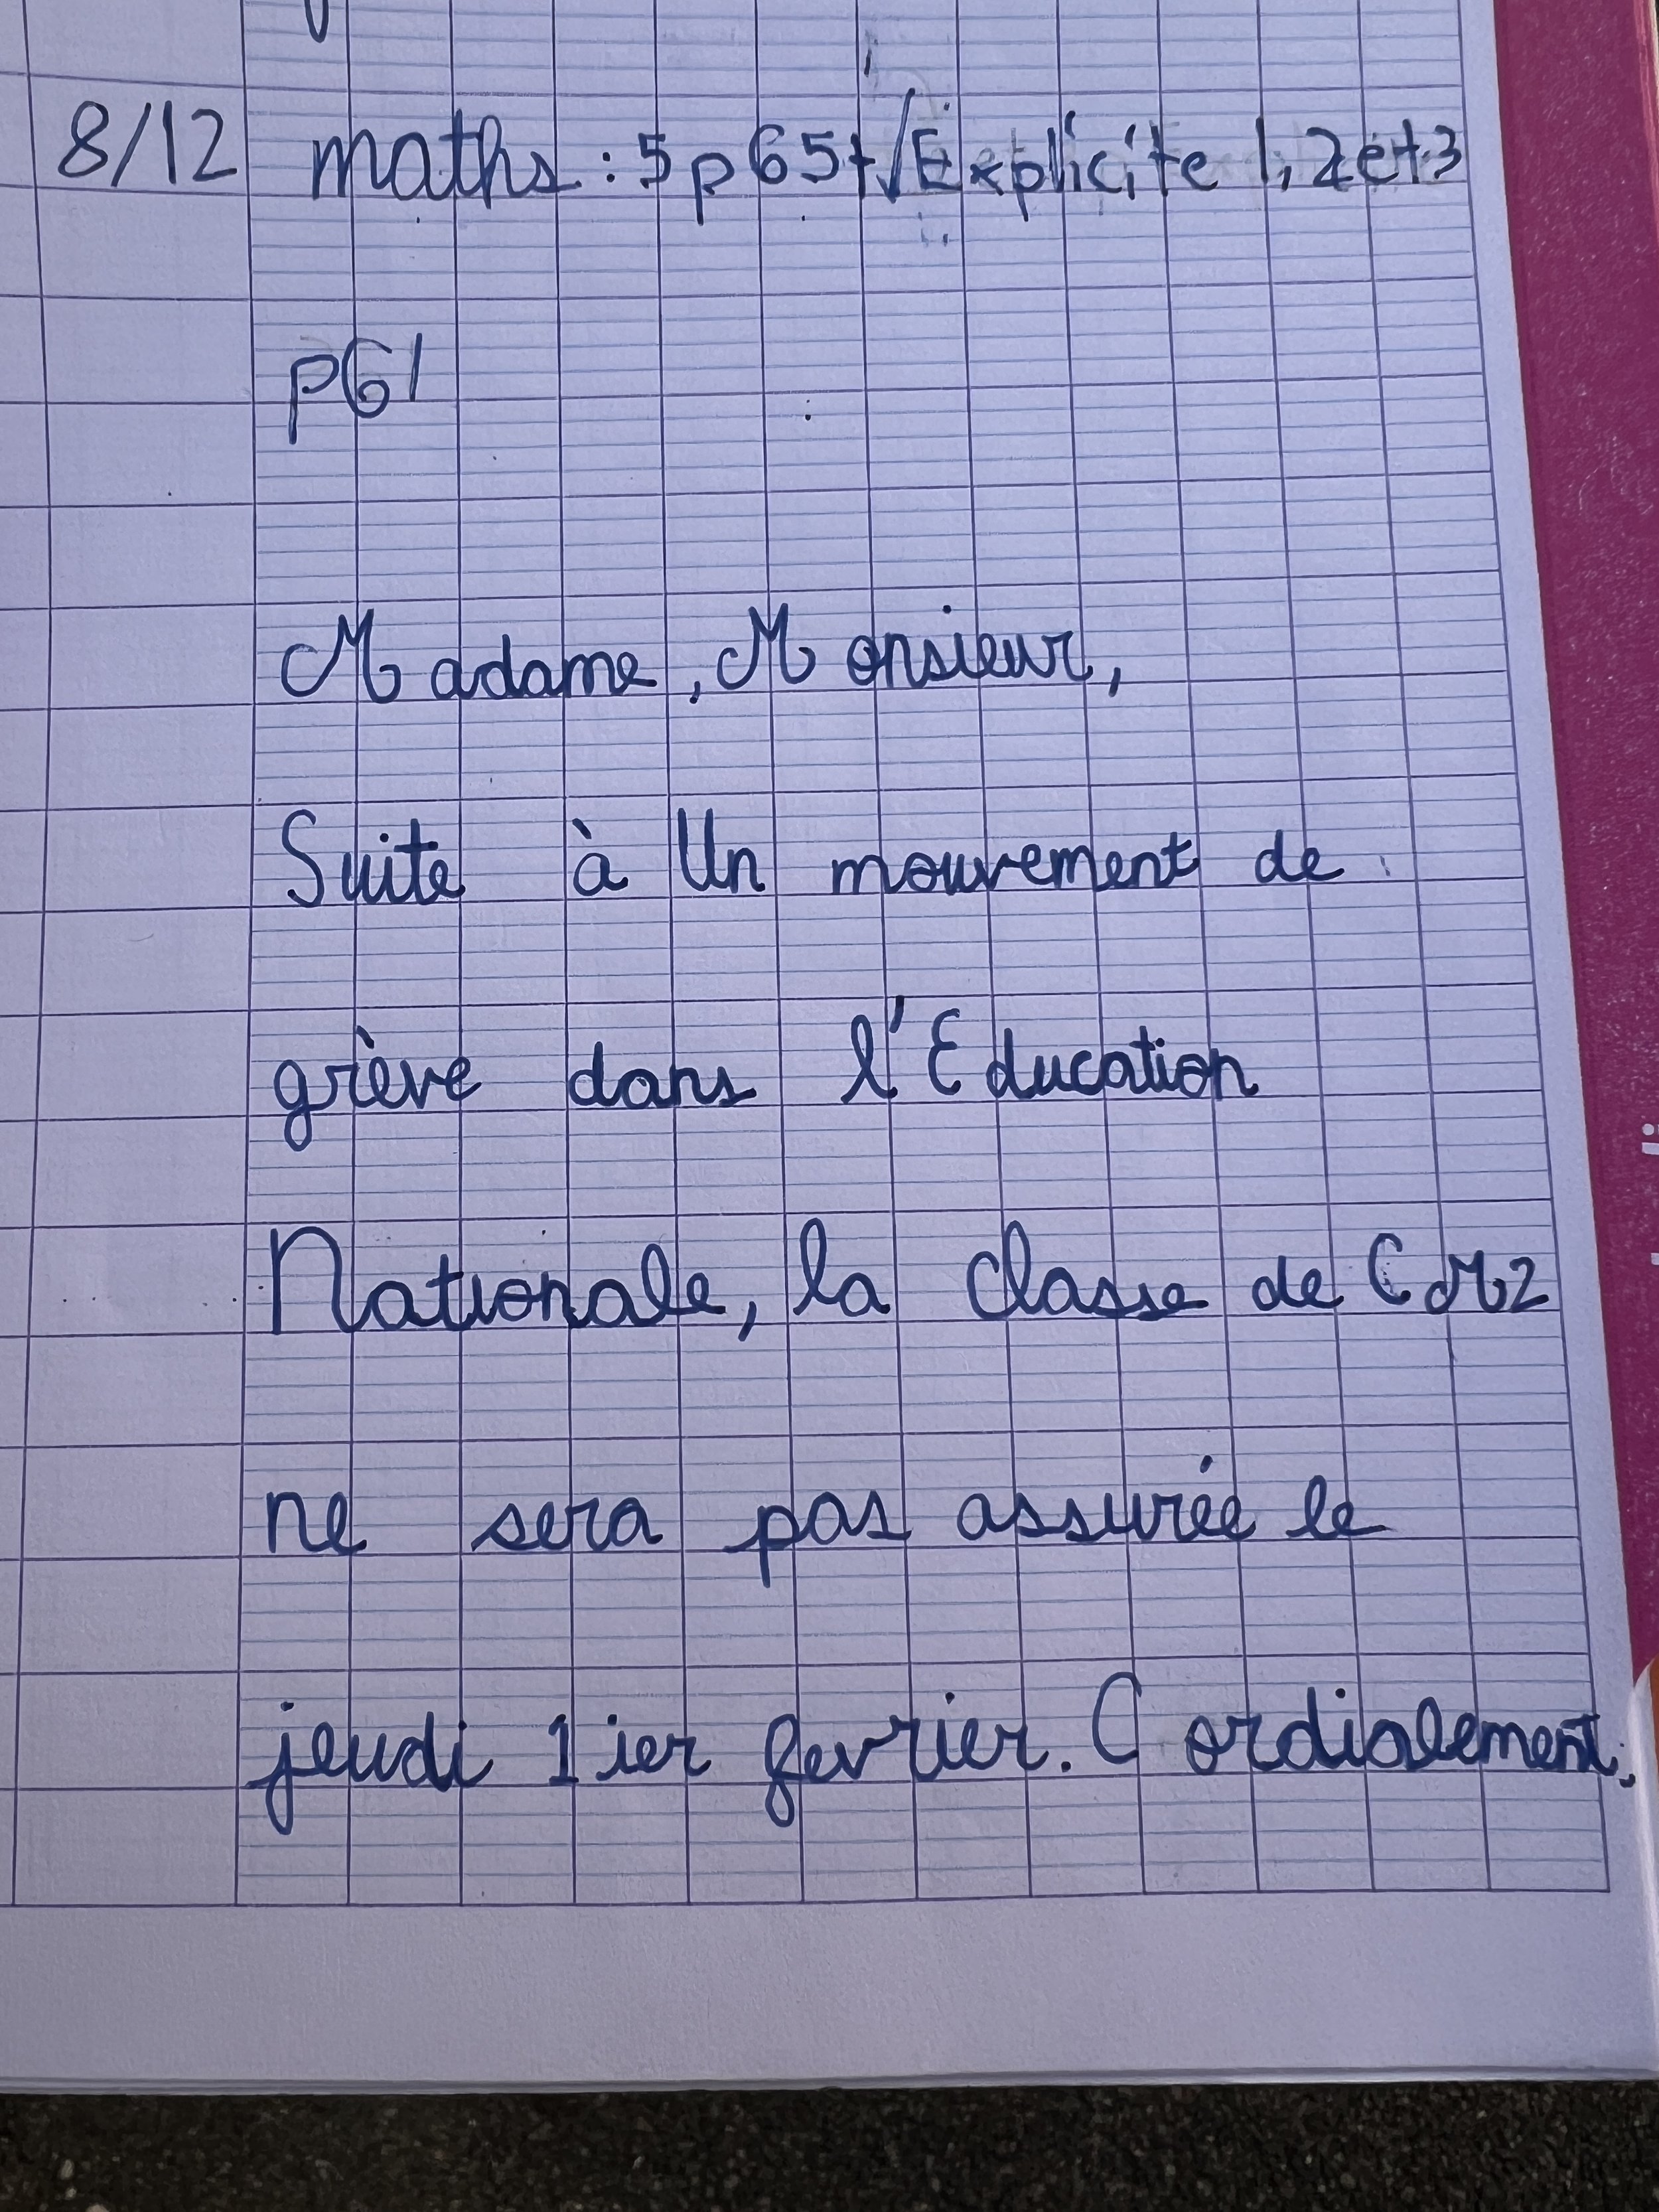 8/12 maths : 5 p 65 + √Explicite 1, 2 et 3
p61
Madame, Monsieur,
Suite à Un mouvement de
grève dans l'Education
Nationale, la classe de CM2
ne sera pas assurée le
jeudi 1ier fevrier. Cordialement,